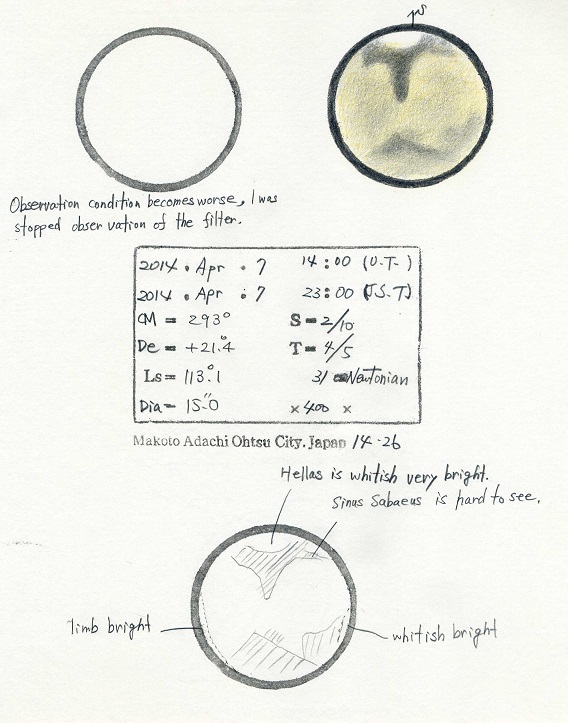 Observation condition becomes worse, I was
stopped observation of the filter.
2014 . Apr . 7 14:00 (U.T.)
2014 . Apr . 7 23:00 (J.S.T)
CM = 293°
S = 2/10
De = +21.°4
T = 4/5
Ls = 113.°1
31 cm Newtonian
Dia = 15."0
×400 ×
Makoto Adachi Ohtsu City. Japan 14-26
Hellas is whitish very bright.
Sinus Sabaeus is hard to see.
limb bright
whitish bright